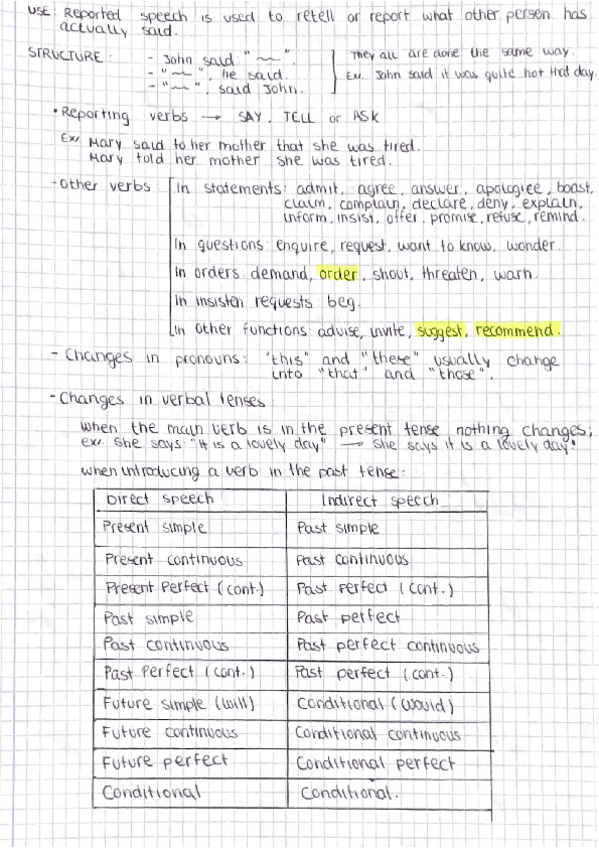 USE: Reported speech is used to retell or report what other person has
actually said.
STRUCTURE: - John said "~~". They all are done the same way.
- "~~", he said. Ex. John said it was quite hot that day.
- "~~", said John.
• Reporting verbs → SAY, TELL or ASK
Ex. Mary said to her mother that she was tired.
Mary told her mother she was tired.
- Other verbs
In statements: admit, agree, answer, apologiee, boast,
claim, complain, declare, deny, explain,
inform, insist, offer, promise, refuse, remind.
In questions: enquire, request, want to know, wonder.
In orders: demand, order, shout, threaten, warn.
In insisten requests beg.
In other functions: advise, invite, suggest, recommend.
- Changes in pronouns: "this" and "these" usually change
into "that" and "those".
- Changes in verbal tenses:
when the main verb is in the present tense nothing changes;
ex. She says: "It is a lovely day" → She says it is a lovely day".
when introducing a verb in the past tense:
Direct speech Indirect speech
Present simple Past simple
Present continuous Past continuous
Present Perfect (cont.) Past perfect (cont.)
Past simple Past perfect
Past continuous Past perfect continuous
Past Perfect (cont.) Past perfect (cont.)
Future simple (will) Conditional (would)
Future continuous Conditional continuous
Future perfect Conditional perfect
Conditional Conditional.